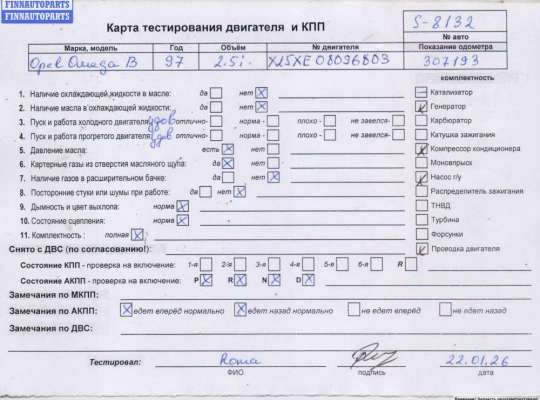 FINNAUTOPARTS
FINNAUTOPARTS
FINNAUTOPARTS
Карта тестирования двигателя и КПП
S-8132
№ авто
Марка, модель Год Объём № двигателя Показание одометра
Opel Omega B 97 2.5i X25XE 08096803 307193
комплектность
1. Наличие охлаждающей жидкости в масле: да нет Катализатор
2. Наличие масла в охлаждающей жидкости: да нет Генератор
3. Пуск и работа холодного двигателя: удов отлично- норма - плохо - не завелся- Карбюратор
4. Пуск и работа прогретого двигателя: удов отлично- норма - плохо - не завелся- Катушка зажигания
5. Давление масла: есть нет Компрессор кондиционера
6. Картерные газы из отверстия масляного щупа: да нет Моновпрыск
7. Наличие газов в расширительном бачке: да нет Насос г/у
8. Посторонние стуки или шумы при работе: да нет Распределитель зажигания
9. Дымность и цвет выхлопа: норма ТНВД
10. Состояние сцепления: норма Турбина
11. Комплектность : полная Форсунки
Снято с ДВС (по согласованию!): Проводка двигателя
Состояние КПП - проверка на включение: 1-я 2-я 3-я 4-я 5-я 6-я R
Состояние АКПП - проверка на включение: P R N D
Замечания по МКПП:
Замечания по АКПП: едет вперёд нормально едет назад нормально не едет вперёд не едет назад
Замечания по ДВС:
Тестировал: Roma 22.01.26
ФИО подпись дата